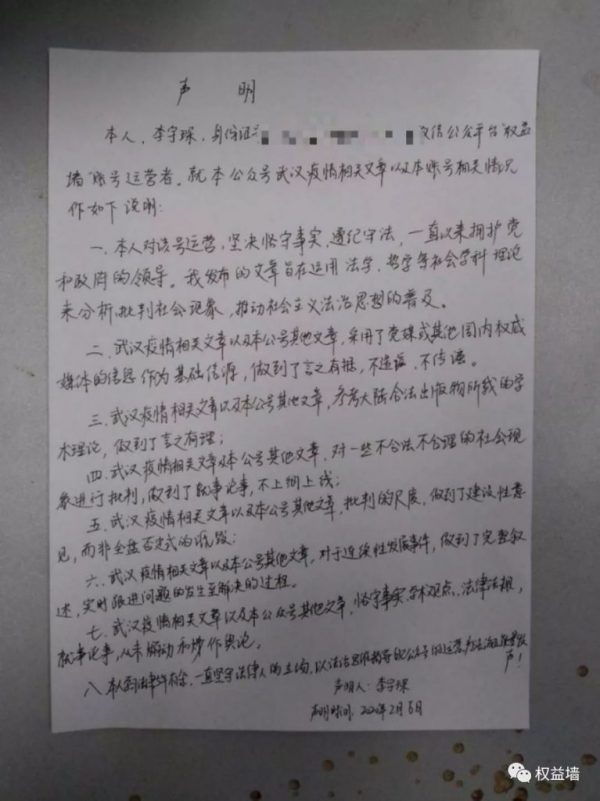 声 明
本人，李宇琛，身份证 微信公众平台“权益
墙”账号运营者。就本公众号武汉疫情相关文章以及本账号相关情况
作如下说明：
一、本人对该号运营，坚决恪守事实，遵纪守法，一直以来拥护党
和政府的领导。我发布的文章旨在运用法学，哲学等社会学科理论
来分析批判社会现象，推动社会主义法治思想的普及。
二、武汉疫情相关文章以及本公号其他文章，采用了党媒或其他国内权威
媒体的信息作为基础信源，做到了言之有据，不造谣、不传谣。
三、武汉疫情相关文章以及本公号其他文章，参考大陆合法出版物所载的学
术理论，做到了言之有理；
四、武汉疫情相关文章及本公号其他文章，对一些不合法不合理的社会现
象进行批判，做到了就事论事，不上纲上线；
五、武汉疫情相关文章以及本公号其他文章，批判的尺度，做到了建设性意
见，而非全盘否定式的诋毁；
六、武汉疫情相关文章以及本公号其他文章，对于连续性发展事件，做到了完整叙
述，实时跟进问题的发生至解决的过程。
七、武汉疫情相关文章以及本公众号其他文章，恪守事实，学术观点，法律法规，
就事论事，从未煽动和炒作舆论。
八、本人 法律 ，一直坚守法律人的立场，以法治思维指导 公众号的运营，为 发
声！
声明人：李宇琛
声明时间：2020年2月6日
权益墙